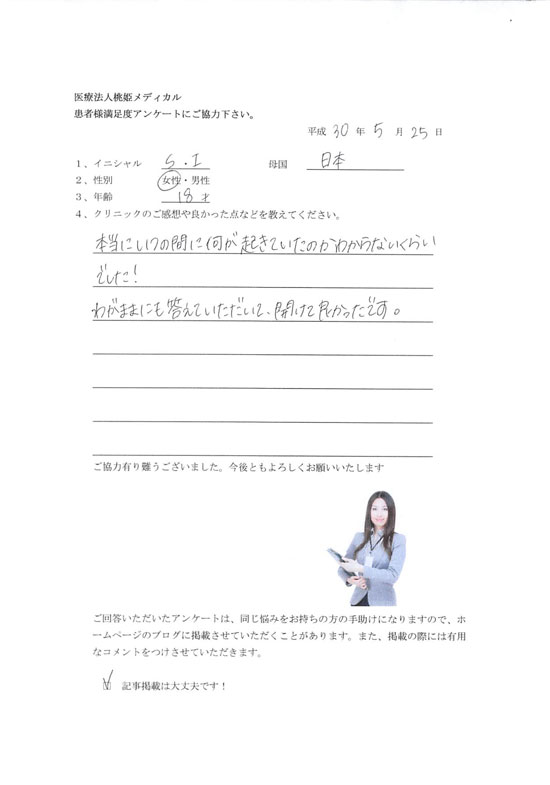 医療法人桃姫メディカル
患者様満足度アンケートにご協力下さい。
平成 30 年 5 月 25 日
1、イニシャル S.I 母国 日本
2、性別 女性・男性
3、年齢 18才
4、クリニックのご感想や良かった点などを教えてください。
本当にいつの間に何が起きていたのかわからないくらい
でした!
わがままにも答えていただいて、開けて良かったです。
ご協力有り難うございました。今後ともよろしくお願いいたします
ご回答いただいたアンケートは、同じ悩みをお持ちの方の手助けになりますので、ホ
ームページのブログに掲載させていただくことがあります。また、掲載の際には有用
なコメントをつけさせていただきます。
記事掲載は大丈夫です！